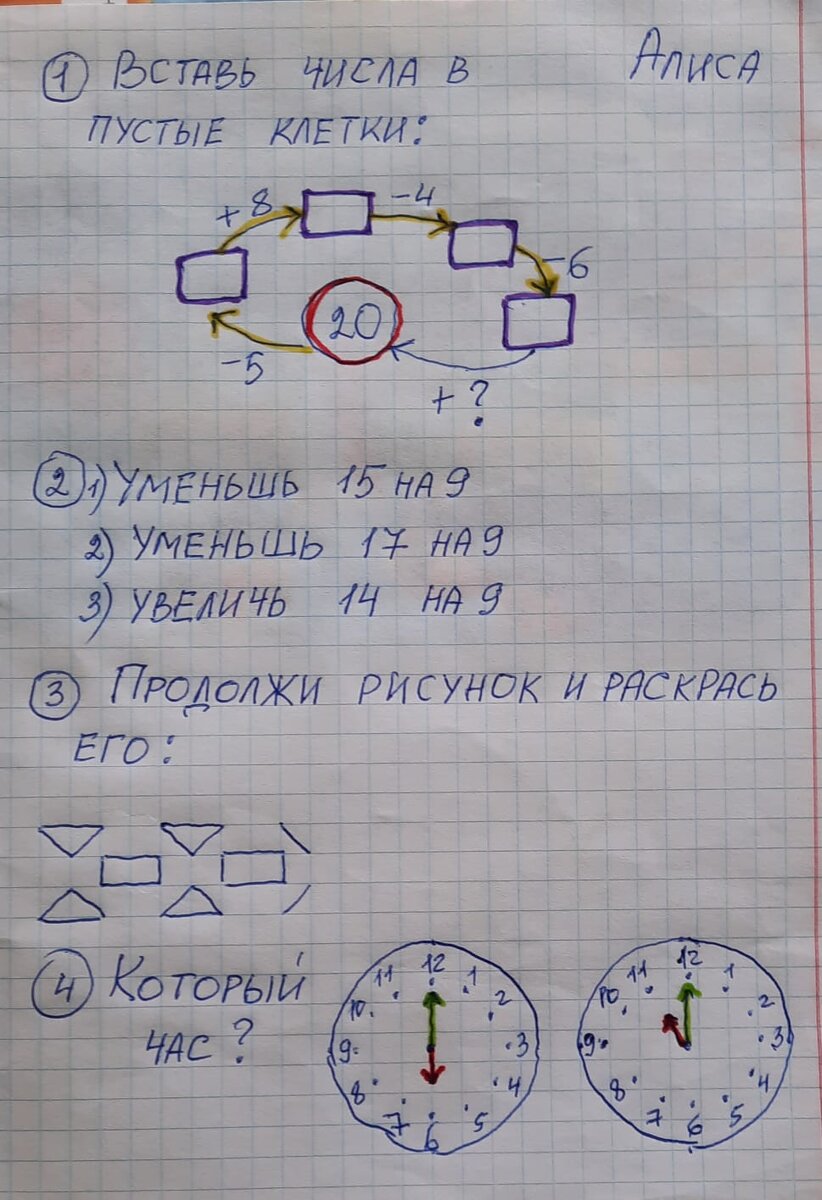 ① Вставь числа в Алиса
пустые клетки:
+8 -4
-6
20
-5
+ ?
② 1) Уменьшь 15 на 9
2) Уменьшь 17 на 9
3) Увеличь 14 на 9
③ Продолжи рисунок и раскрась
его:
④ Который
час?
12 1 2 3 4 5 6 7 8 9 10 11
12 1 2 3 4 5 6 7 8 9 10 11